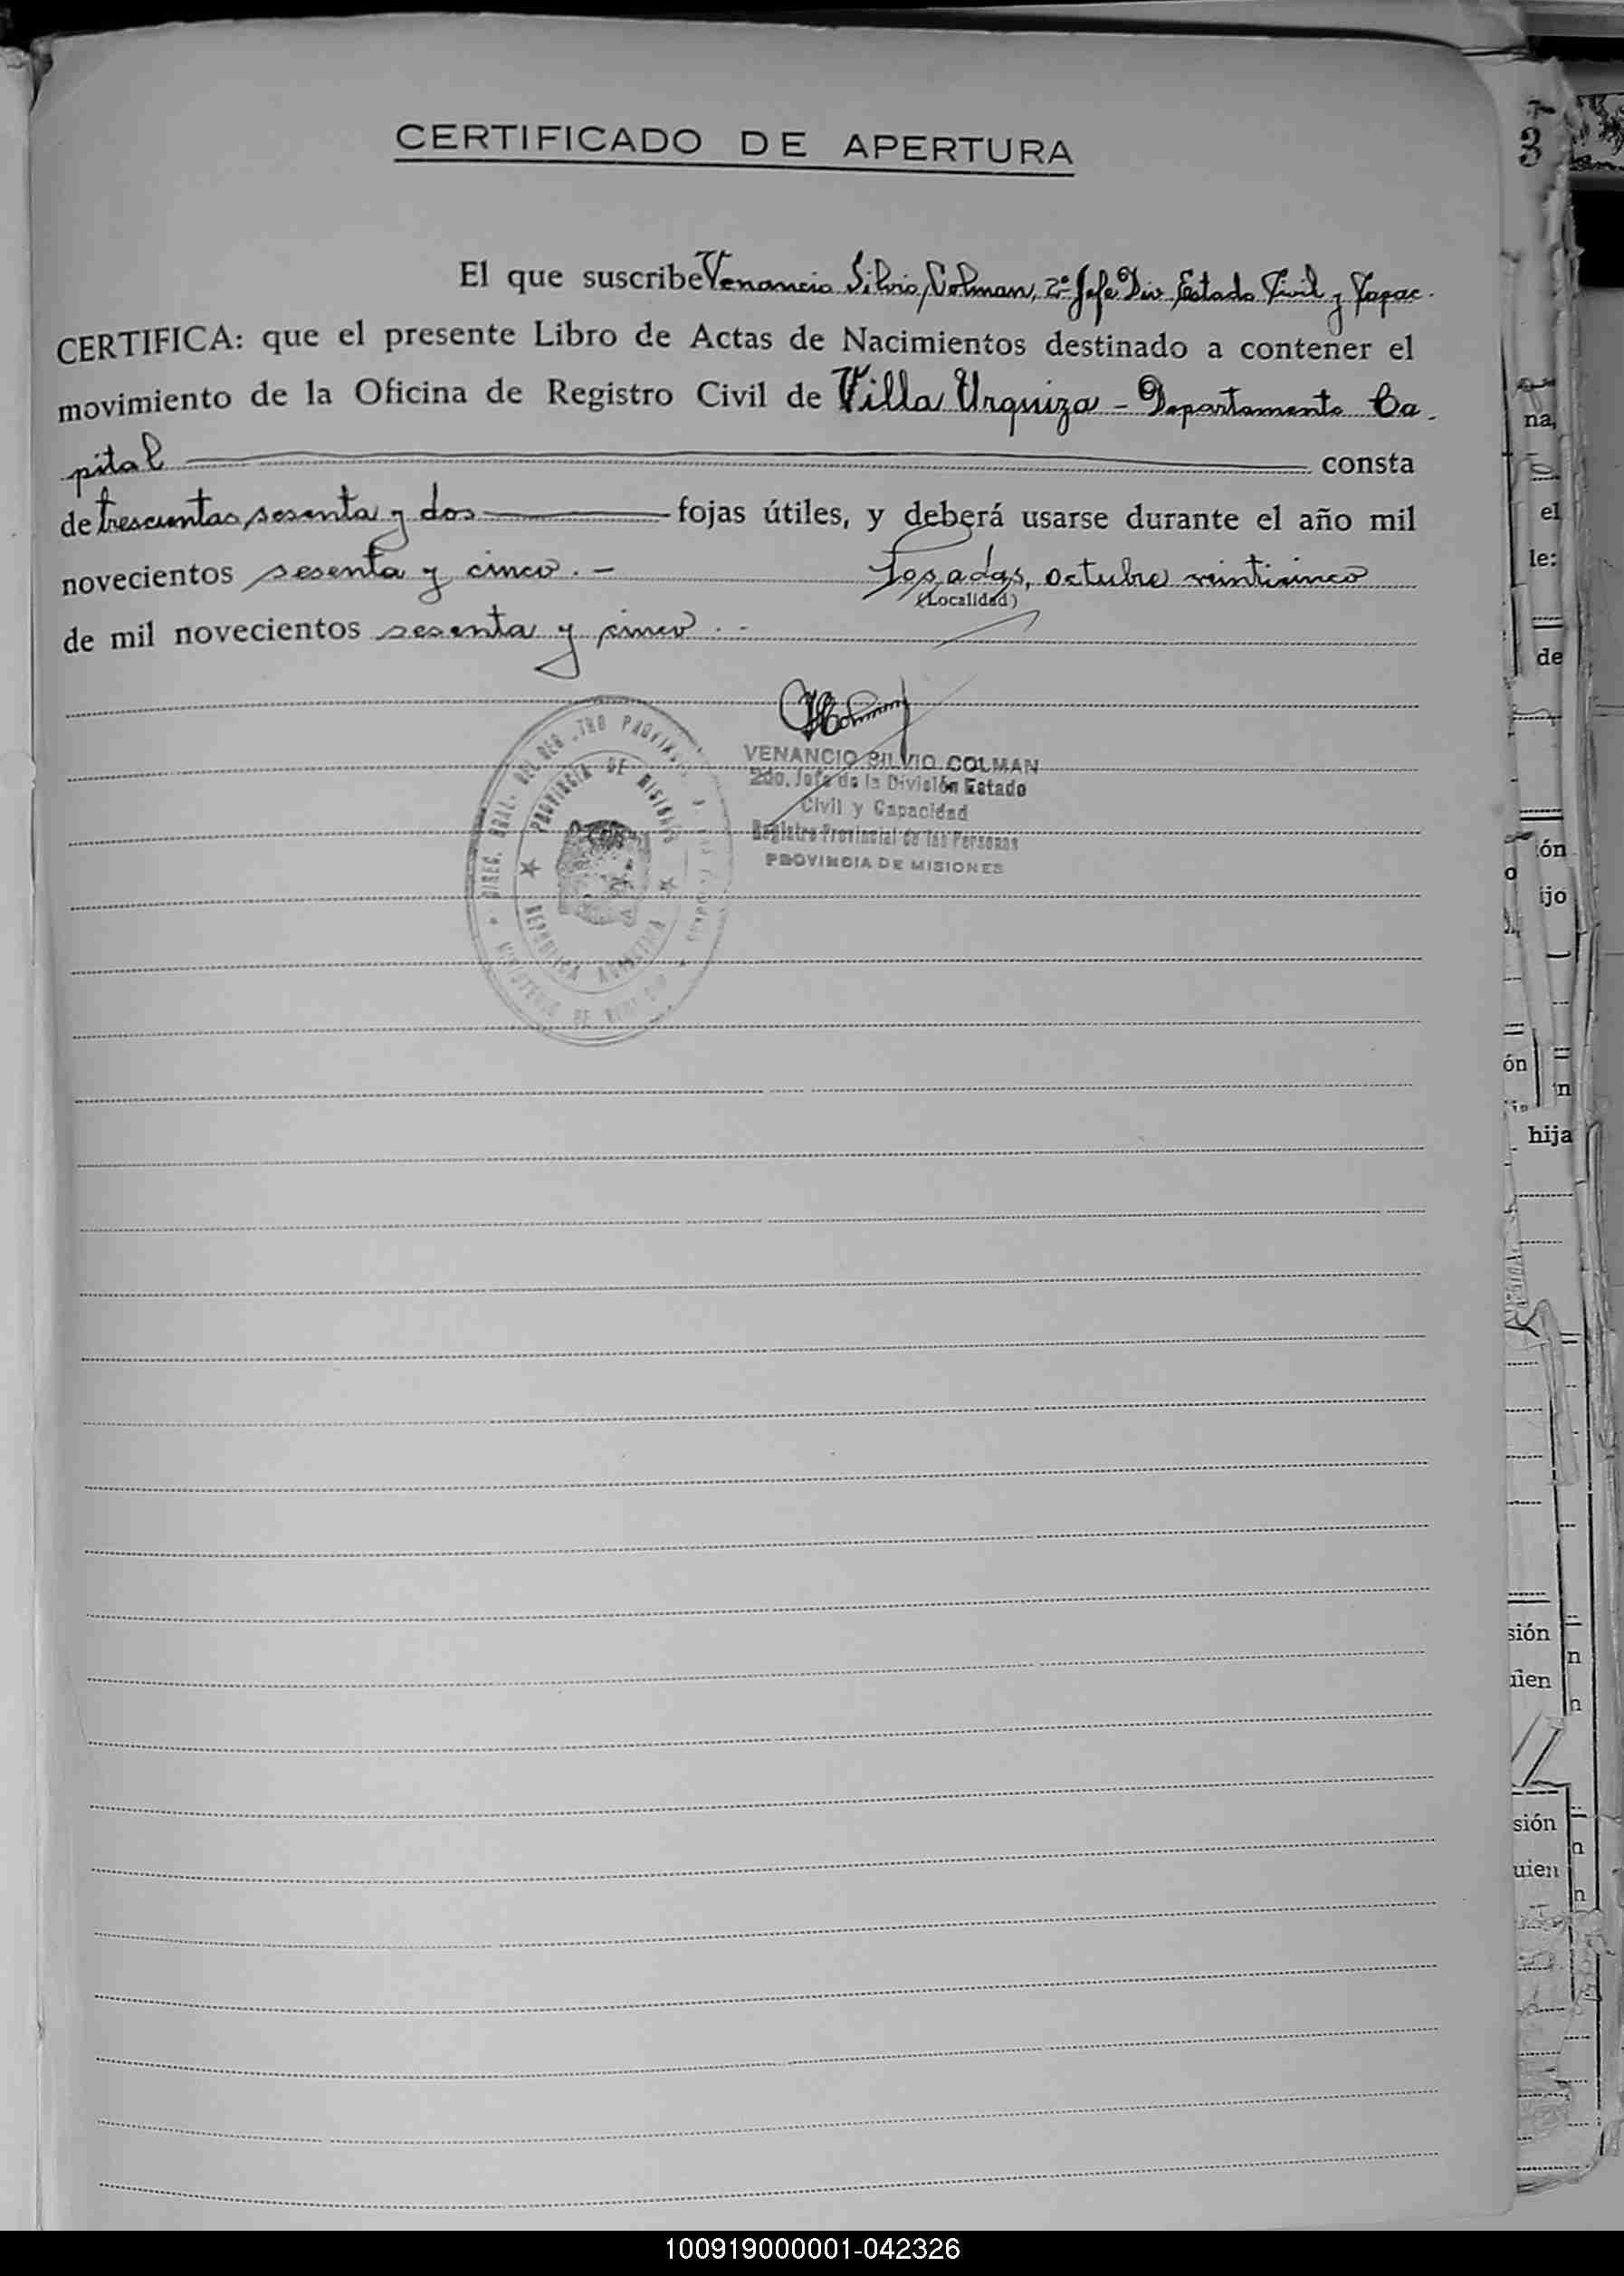 CERTIFICADO DE APERTURA
3
El que suscribe Venancio Silvio Colman, 2º Jefe Div. Estado Civil y Capac.
CERTIFICA: que el presente Libro de Actas de Nacimientos destinado a contener el
movimiento de la Oficina de Registro Civil de Villa Urquiza - Departamento Ca-
pital consta
de trescientas sesenta y dos fojas útiles, y deberá usarse durante el año mil
novecientos sesenta y cinco. - Posadas, octubre veinticinco
(Localidad)
de mil novecientos sesenta y cinco. -
VENANCIO SILVIO COLMAN
2do. Jefe de la División Estado
Civil y Capacidad
Registro Provincial de las Personas
PROVINCIA DE MISIONES
PROVINCIA DE MISIONES
REPUBLICA ARGENTINA
na,
el
le:
de
ón
ijo
ón
n
hija
sión
n
uien
n
sión
n
uien
n
100919000001-042326